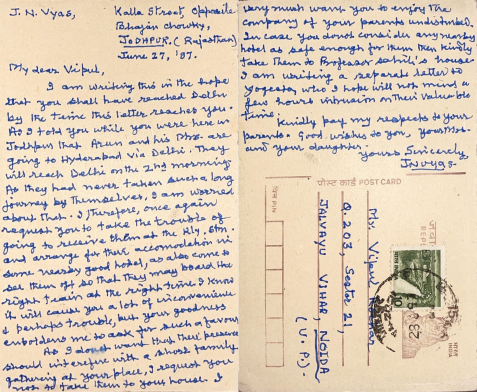 J. N. Vyas,
Kalla Street, Opposite
Bhajan Chowky,
JODHPUR. (Rajasthan)
June 27, '97.
My dear Vipul,
I am writing this in the hope
that you shall have reached Delhi
by the time this letter reaches you.
As I told you while you were here in
Jodhpur that Arun and his are
going to Hyderabad via Delhi. They
will reach Delhi on the 2nd morning
As they had never taken such a long
journey by themselves, I am worried
about that. I therefore, once again
request you to take the trouble of
going to receive them at the Rly. Stn.
and arrange for their accomodation in
some nearby good hotel, as also come to
see them off so that they may board the
right train at the right time. I know
it will cause you a lot of inconvenience
& perhaps trouble, but your goodness
emboldens me to ask for such a favour
As I do not want that their presence
should interfere with a short family
gathering at your place, I request you
not to take them to your house. I
very much want you to enjoy the
company of your parents undisturbed.
In case you do not consider any nearby
hotel as safe enough for them then kindly
take them to Professor Sahib's house.
I am writing a separate letter to
who I hope will not mind a
few hours intrusion on their valuable
time
Kindly pay my respects to your
parents. Good wishes to you, your
and your daughter.
Yours Sincerely,
JN Vyas.
पोस्ट कार्ड POST CARD
पिन PIN
Mr. Vipul
Q. 203, Sector 21,
JALVAYU VIHAR, NOIDA
(U.P.).
भारत
INDIA